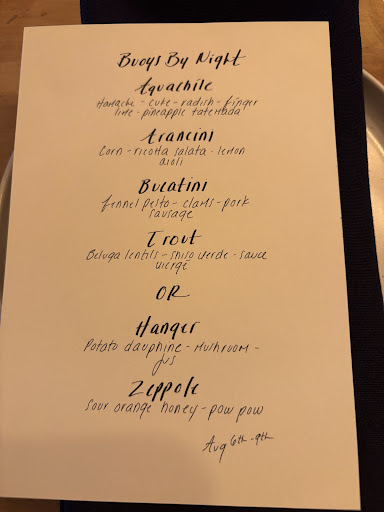 Buoys By Night
Aguachile
Hamachi - cuke - radish - finger
lime - pineapple tatemada
Arancini
Corn - ricotta salata - lemon
aioli
Bucatini
fennel pesto - clams - pork
sausage
Trout
Beluga lentils - shiso verde - sauce
vierge
OR
Hanger
Potato dauphine - Mushroom -
jus
Zeppole
Sour orange honey - pow pow
Aug 6th - 9th